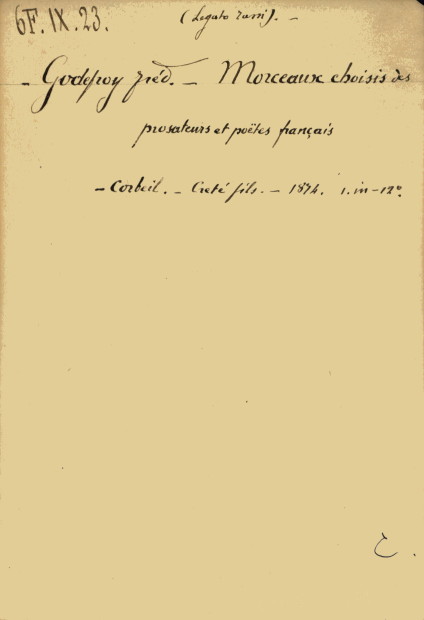 6F.IX.23.
(Legato Zani). -
- Godefroy fréd. - Morceaux choisis des
prosateurs et poëtes français
- Corbeil. - Creté fils. - 1874. 1. in-12°.